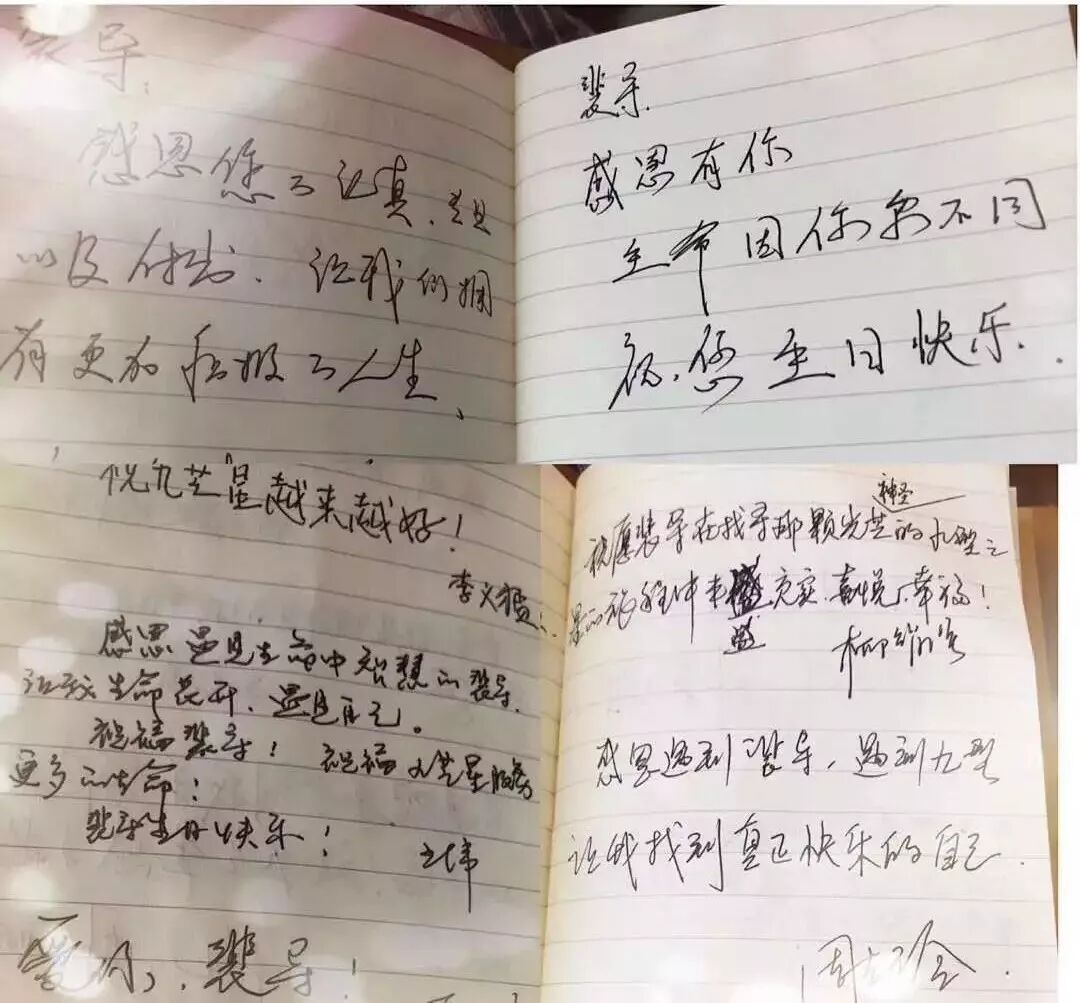 裴导，
感恩您的认真、
以及付出。让我们拥
有更加积极的人生、
裴导
感恩有你
生命因你而不同
祝您生日快乐.
悦九芒星越来越好！
李义
感恩遇见生命中智慧的裴导.
让我生命花开，遇见自己。
祝福裴导！祝福九芒星服务
更多的生命！
裴导生日快乐！
爱你，裴导！
神圣
祝愿裴导在找寻那颗光芒的九型之
星的旅程中丰盛充实、喜悦、幸福！
盛
柳
感恩遇到裴导，遇到九型
让我找到真正快乐的自己.
周